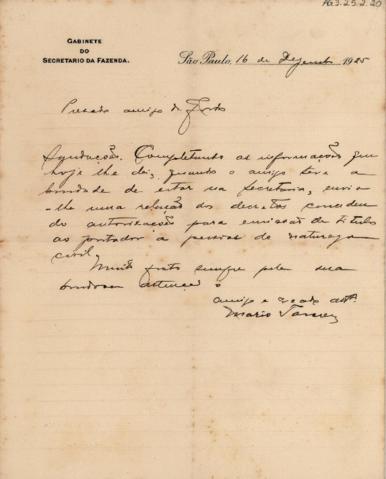 AG3.25.2.20
GABINETE
DO
SECRETARIO DA FAZENDA.
São Paulo, 16 de Dezembro 1925
Prezado amigo Dr
Saudações. Completando as informações que
hoje lhe dei, quando o amigo teve a
bondade de estar na Secretaria, envio
-lhe uma relação dos decretos conceden
do autorisações para emissão de titulos
ao portador a pessoas de natureza
civil.
Muito grato sempre pela sua
bondosa attenção o
amigo e
Mario Tavares